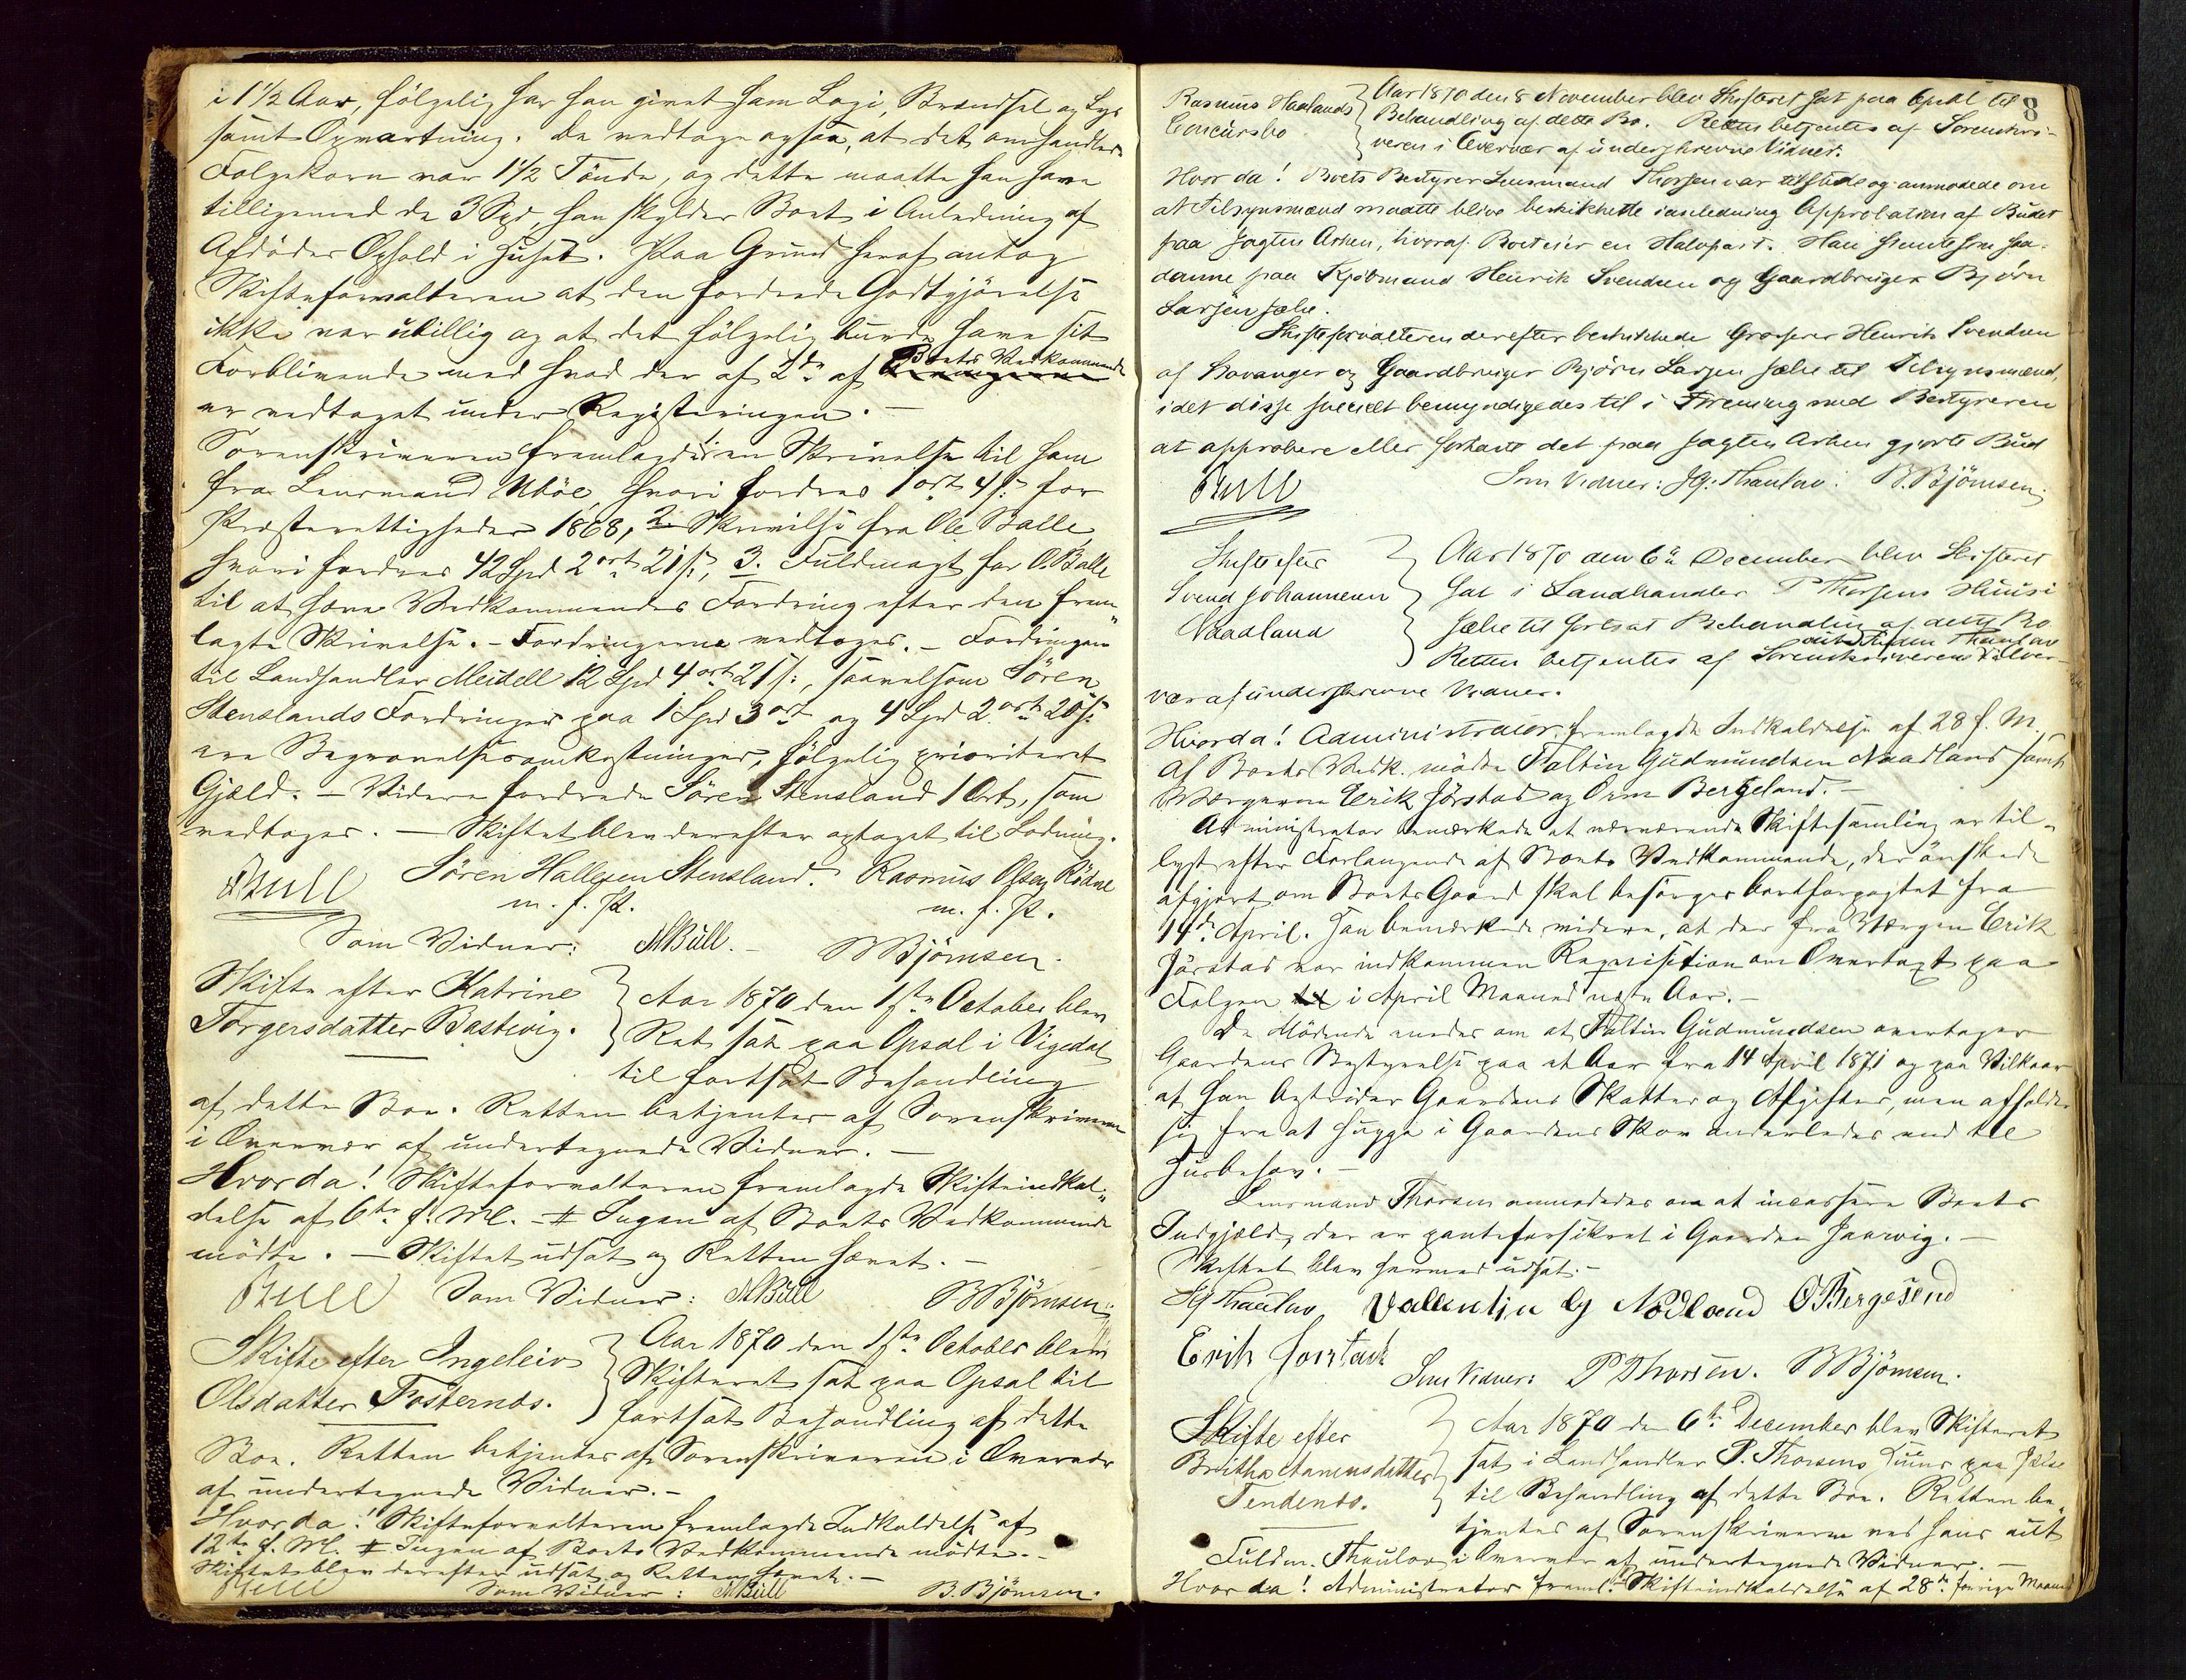 i 1½ Aar, fölgelig har han givet ham Logi, Brændsel og Lys
samt Opvartning. De vedtoge ogsaa, at det omhandlede
Folgekorn var 1½ Tönde, og dette maatte han have
tilligemed de 3 Spd, han skylder Boet i Anledning af
Afdödes Ophold i Huset. Paa Grund heraf antog
Skifteforvalteren at den fordrede Godtgjörelse
ikke var ubillig og at det fölgelig burde have sit
Forblivende med hvad der af 2de af Boets Vedkommende
er vedtaget under Registeringen. —
Sorenskriveren fremlagde 1. en Skrivelse til ham
fra Lensmand Uböe, hvori fordres 1 ort 4 s. for
Præsterettigheder 1868, 2. Skrivelse fra Ole Balle,
hvori fordres 42 Spd 2 ort 21 s., 3. Fuldmagt for O. Balle
til at hæve Vedkommendes Fordring efter den frem-
lagte Skrivelse. – Fordringerne vedtoges. – Fordringen
til Landhandler Meidell 12 Spd 4 ort 21 s., saavelsom Sören
Stenslands Fordringer paa 1 Spd 3 ort og 4 Spd 2 ort 20 s.
ere Begravelsesomkostninger, fölgelig prioriteret
Gjæld. – Videre fordrede Sören Stensland 1 Ort, som
vedtoges. — Skiftet blev derefter optaget til Lodning.
Bull Sören Hallesen Stensland. Rasmus Olsen Rödne
m. f. P. m. f. P.
Som Vidner: MBull. – B Björnsen.
Skifte efter Katrine
Torgersdatter Bastevig.
Aar 1870 den 1ste October blev
Ret sat paa Opsal i Vigedal
til fortsat Behandling
af dette Boe. Retten betjentes af Sorenskriveren
i Overvær af undertegnede Vidner. —
Hvorda! Skifteforvalteren fremlagde Skifteindkal-
delse af 6te f. M. – Ingen af Boets Vedkommende
mödte. — Skiftet udsat og Retten hævet. —
Bull Som Vidner: MBull B Björnsen.
Skifte efter Ingeleiv
Olsdatter Fosternæs.
Aar 1870 den 1ste October blev
Skifteret sat paa Opsal til
fortsat Behandling af dette
Boe. Retten betjentes af Sorenskriveren i Overvær
af undertegnede Vidner. –
Hvorda! Skifteforvalteren fremlagde Indkaldelse af
12te f. M. Ingen af Boets Vedkommende mödte. –
Skiftet blev derefter udsat og Retten hævet. —
Bull Som Vidner: MBull B. Björnsen.
8
Rasmus Haalands
Concursbo
Aar 1870 den 8 November blev Skifteret sat paa Opsal til
Behandling af dette Bo. Retten betjentes af Sorenskri-
veren i Overvær af underskrevne Vidner.
Hvor da! Boets Bestyrer Lensmand Thorsen var tilstede og anmodede om
at Tilsynsmænd maatte blive beskikkede i anledning Approbation af Budet
paa Jagten Arken, hvoraf Boet eier en Halvpart. Han stemte som saa-
danne paa Kjøbmand Henrik Svendsen og Gaardbruger Bjørn
Larsen Jælse.
Skifteforvalteren derefter beskikkede Grosserer Henrik Svendsen
af Stavanger og Gaardbruger Bjørn Larsen Jælse til Tilsynsmænd,
idet disse specielt bemyndigedes til i Forening med Bestyreren
at approbere eller forkaste det paa Jagten Arken gjorte Bud
Bull Som Vidner: Hj: Thaulow: B. Björnsen.
Skifte efter
Svend Johannesen
Naadland
Aar 1870 den 6te December blev Skifteret
sat i Landhandler P Thorsens Huus i
Jælse til fortsat Behandling af dette Bo
Retten betjentes af Sorenskriveren ved aut. Fuldm Thaulow i Over-
vær af underskrevne Vidner.
Hvorda! Administrator fremlagde Indkaldelse af 28 f. M.
Af Boets Vedk. mödte Faltin Gudmundsen Naadland samt
Værgerne Erik Jörstad og Orm Bergeland. –
Administrator bemærkede at nærværende Skiftesamling er til-
lyst efter Forlangende af Boets Vedkommende, der önskede
afgjort om Boets Gaard skal besörges bortforpagtet fra
14de April. Han bemærkede videre, at der fra Værgen Erik
Jörstad var indkommen Requisition om Overtagt paa
Folgen i April Maaned næste Aar. –
De Mödende enedes om at Faltin Gudmundsen overtager
Gaardens Bestyrelse paa et Aar fra 14 April 1871 og paa Vilkaar
at han bestrider Gaardens Skatter og Afgifter, men afholder
sig fra at hugge i Gaardens Skov anderledes end til
Husbehov. –
Lensmand Thorsen anmodedes om at incassere Boets
Indgjæld, der er panteforsikret i Gaarden Haarvig. –
Skiftet blev hermed udsat. –
Hj Thaulow Vallentin G Nodland OBergesend
Erik Jorstad Som Vidner: P Thorsen. B Björnsen.
Skifte efter
Britha Aanensdatter
Tendenes.
Aar 1870 den 6te December blev Skifteret
sat i Landhandler P. Thorsens Huus paa Jælse
til Behandling af dette Boe. Retten be-
tjentes af Sorenskriveren ved hans aut
Fuldm. Thaulow i Overvær af undertegnede Vidner. —
Hvor da! Administrator freml. Skifteindkaldelse af 28de forrige Maaned